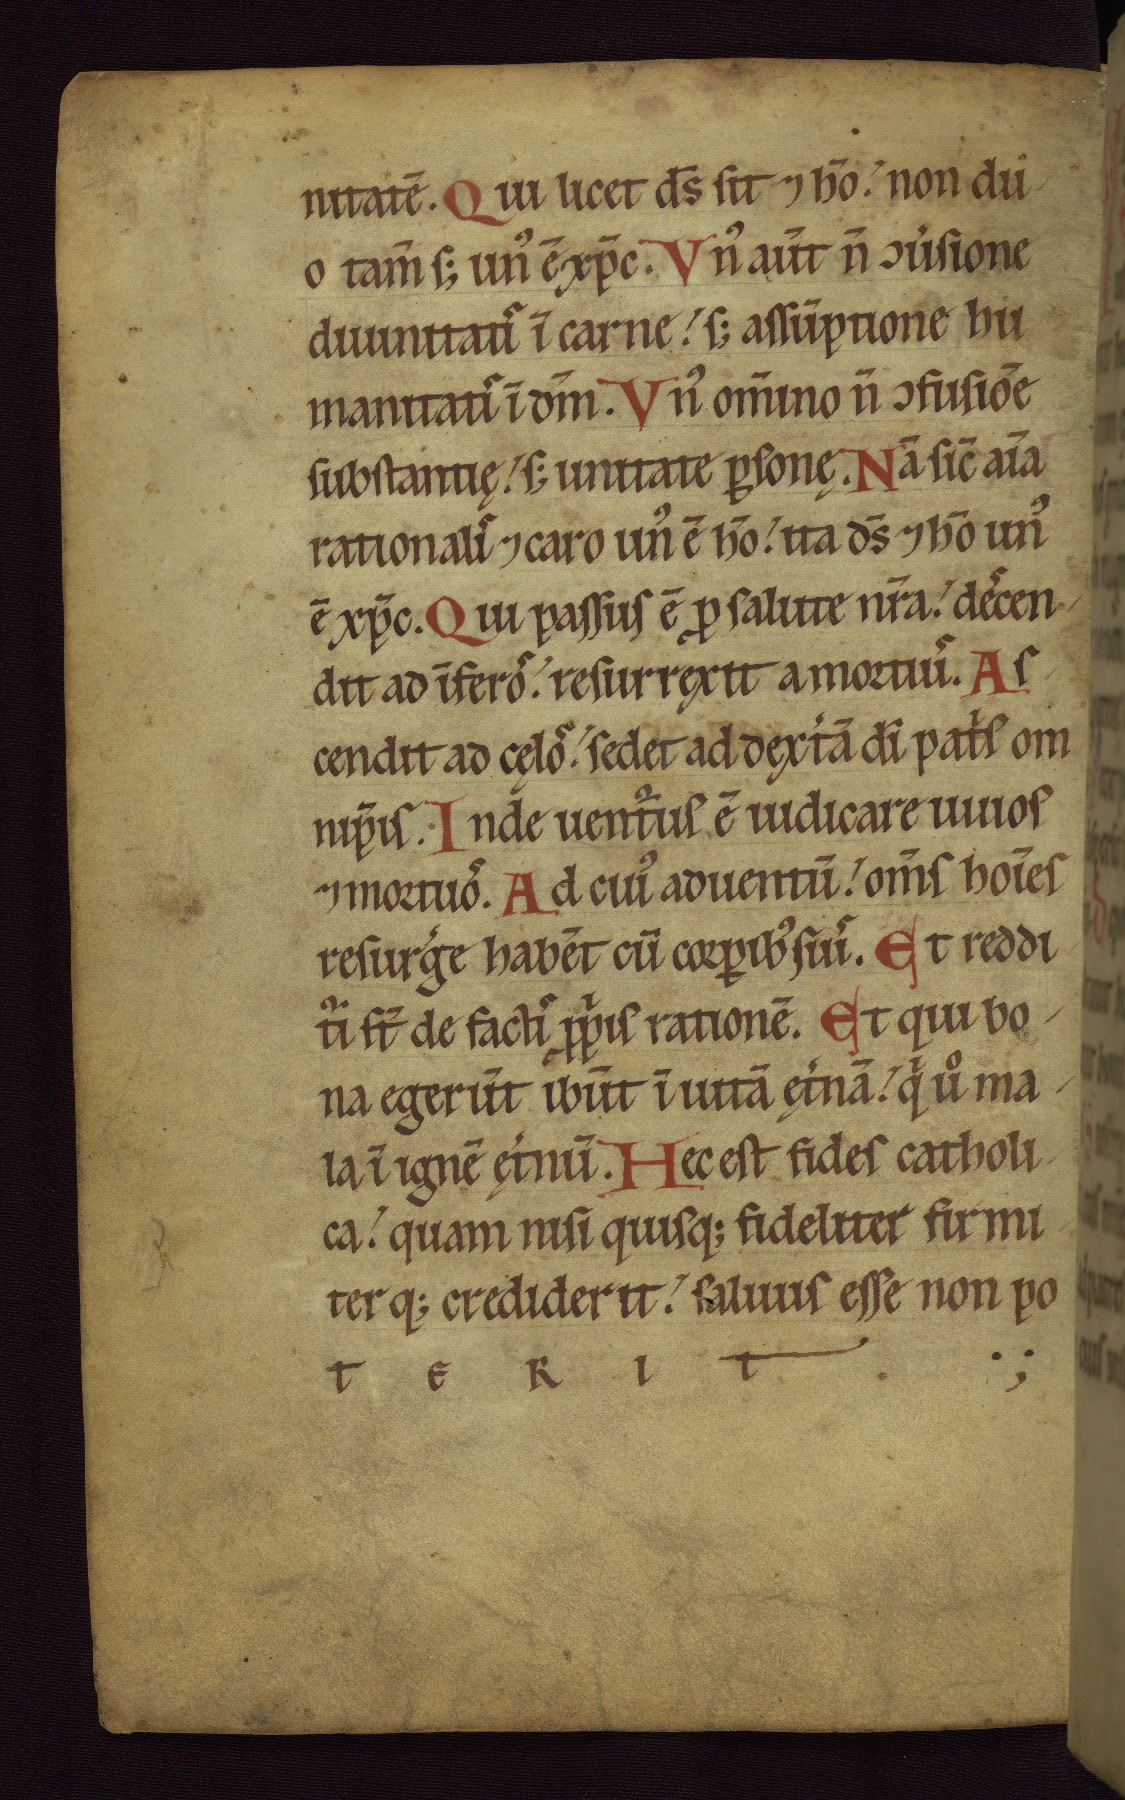 nitatē. Qui licet ds̄ sit ⁊ hō! non du
o tam̄ s; unꝰ ē xp̄c. Vnꝰ aut̄ n̄ ↄu̓sione
diuinitatiſ ī carne! s; assūptione hu
manitatiſ ī dm̄. Vnꝰ om̄ino n̄ ↄfusiōe
substantię! s; unitate ꝑsonę. Nā sic̄ aīa
rationaliſ ⁊ caro unꝰ ē hō! ita ds̄ ⁊ hō unꝰ
ē xp̄c. Qui passus ē ꝓ salute nr̄a! deſcen
dit ad īferoſ! resurręxit a mortuiſ. As
cendit ad cęloſ! sedet ad dęxt̓ā dī pat̓s om
nip̄is. Inde uentᷣus ē iudicare uiuos
⁊ mortuoſ. Ad cuiꝰ aduentū! om̄s hoīes
resurg̓e habēt cū corꝑibꝰ suiſ. Et reddi
tᷣi st̄ de factiſ ꝓpᷤis rationē. Et qui bo
na egerūt ibūt ī uitā ęt̓nā! qͥ ů ma
la ī ignē ęt̓nū. Hec est fides catholi
ca! quam nisi quisq; fideliter firmi
terq; crediderit! saluus esse non po
T E R I T .;